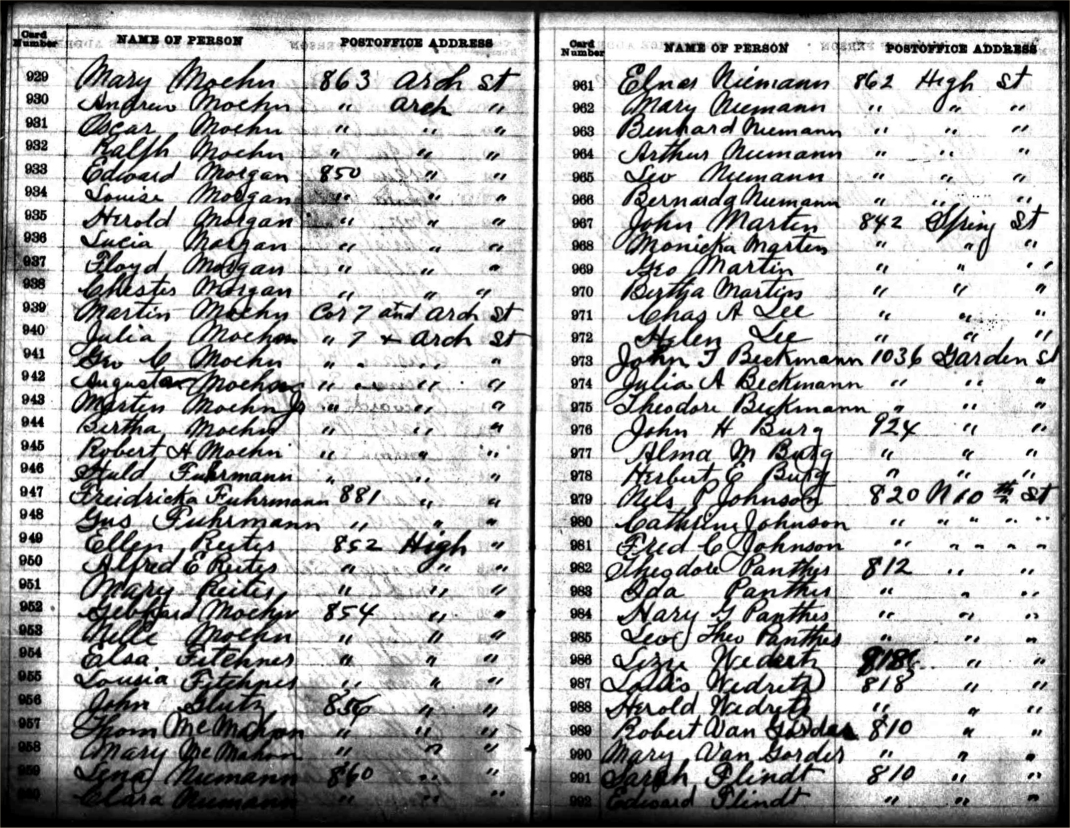 Card Number NAME OF PERSON POSTOFFICE ADDRESS
929 Mary Moehn 863 Arch St
930 Andrew Moehn " Arch "
931 Oscar Moehn " " "
932 Ralph Moehn " " "
933 Edward Morgan 850 " "
934 Louise Morgan " " "
935 Herold Morgan " " "
936 Lucia Morgan " " "
937 Floyd Morgan " " "
938 Chester Morgan " " "
939 Martin Moehn Cor 7 and Arch St
940 Julia Moehn " 7 + Arch St
941 Geo C Moehn " " " "
942 Augusta Moehn " " " "
943 Martin Moehn Jr " " "
944 Bertha Moehn " " "
945 Robert H Moehn " " "
946 Huld Fuhrmann " " "
947 Freidricka Fuhrmann 881 " "
948 Gus Fuhrmann " " "
949 Ellen Reiter 852 High "
950 Alfred E Reiter " " "
951 Mary Reiter " " "
952 Gebhard Moehn 854 " "
953 Nelle Moehn " " "
954 Elsa Fitchner " " "
955 Louisa Fitchner " " "
956 John Glutz 856 " "
957 Thom McMahon " " "
958 Mary McMahn " " "
959 Lena Niemann 860 " "
960 Clara Niemann " " "
Card Number NAME OF PERSON POSTOFFICE ADDRESS
961 Elnar Niemann 862 High St
962 Mary Niemann " " "
963 Benhard Niemann " " "
964 Arthur Niemann " " "
965 Leo Niemann " " "
966 Bernarda Niemann " " "
967 John Martin 842 Spring St
968 Monicka Martin " " "
969 Geo Martin " " "
970 Bertha Martin " " "
971 Chas A Lee " " "
972 Helen Lee " " "
973 John F Beckmann 1036 Garden St
974 Julia A Beckmann " " "
975 Theodore Beckmann " " "
976 John H Burg 924 " "
977 Alma M Burg " " "
978 Herbert E Burg " " "
979 Nels P Johnson 820 N 10 th St
980 Cathrine Johnson " " " " "
981 Fred C Johnson " " " " "
982 Theodore Panther 812 " "
983 Ida Panther " " "
984 Hary G Panther " " "
985 Leo Theo Panther " " "
986 Lizzie Wedertz 818 " "
987 Louis Wedritz 818 " "
988 Herold Wedritz " " "
989 Robert Van Gorder 810 " "
990 Mary Van Gorder " " "
991 Sarah Flindt 810 " "
992 Edward Flindt " " "